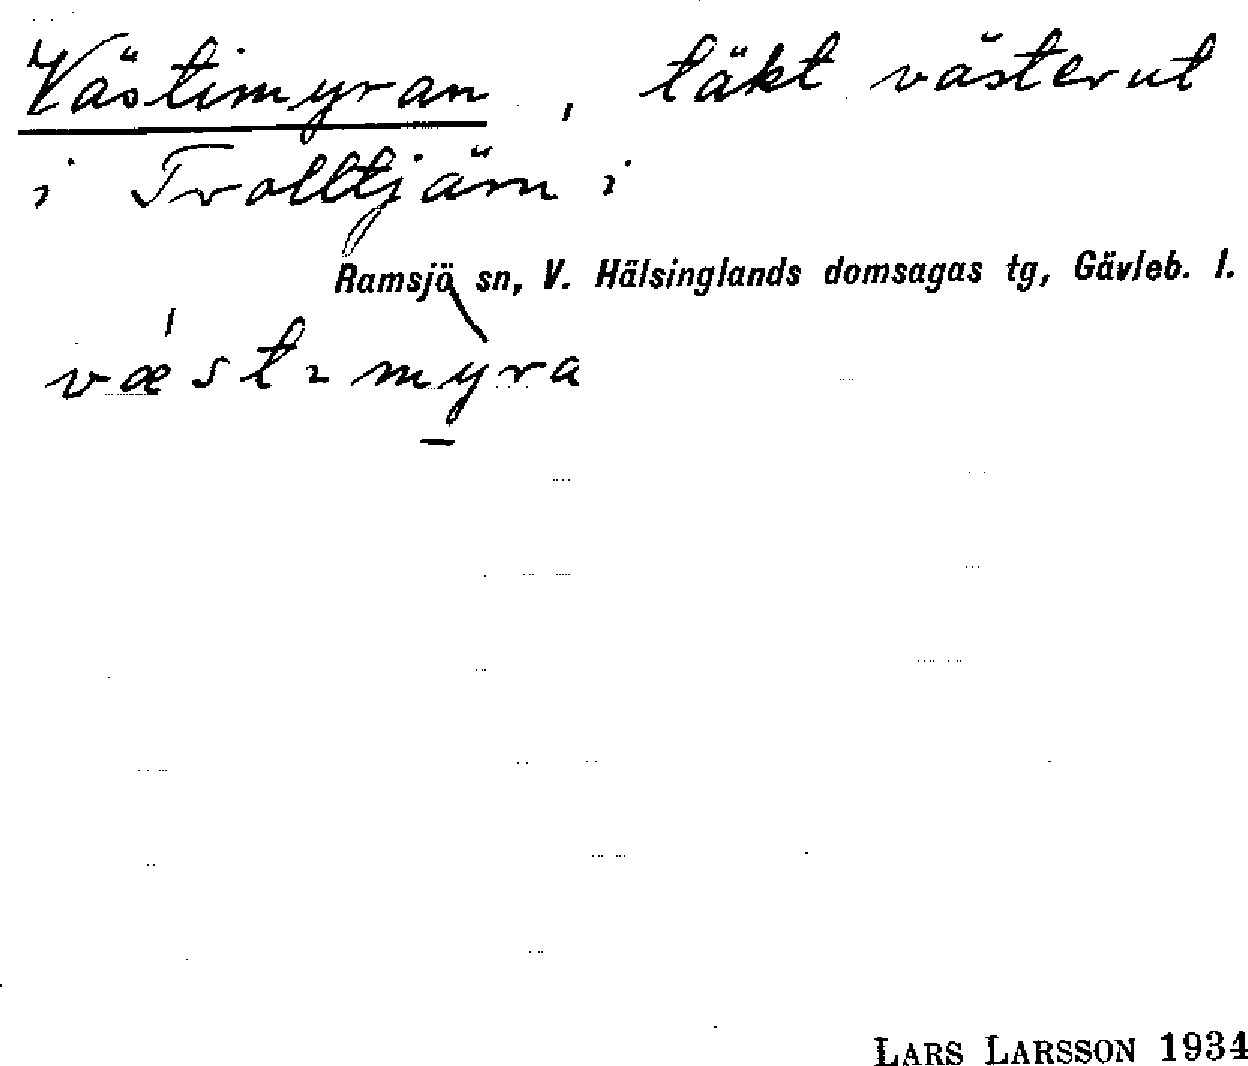 Västimyran, täkt västerut
i Trolltjärn i
Ramsjö sn, V. Hälsinglands domsagas tg, Gävleb. l.
væ´stɿmỳ̠ra
LARS LARSSON 1934